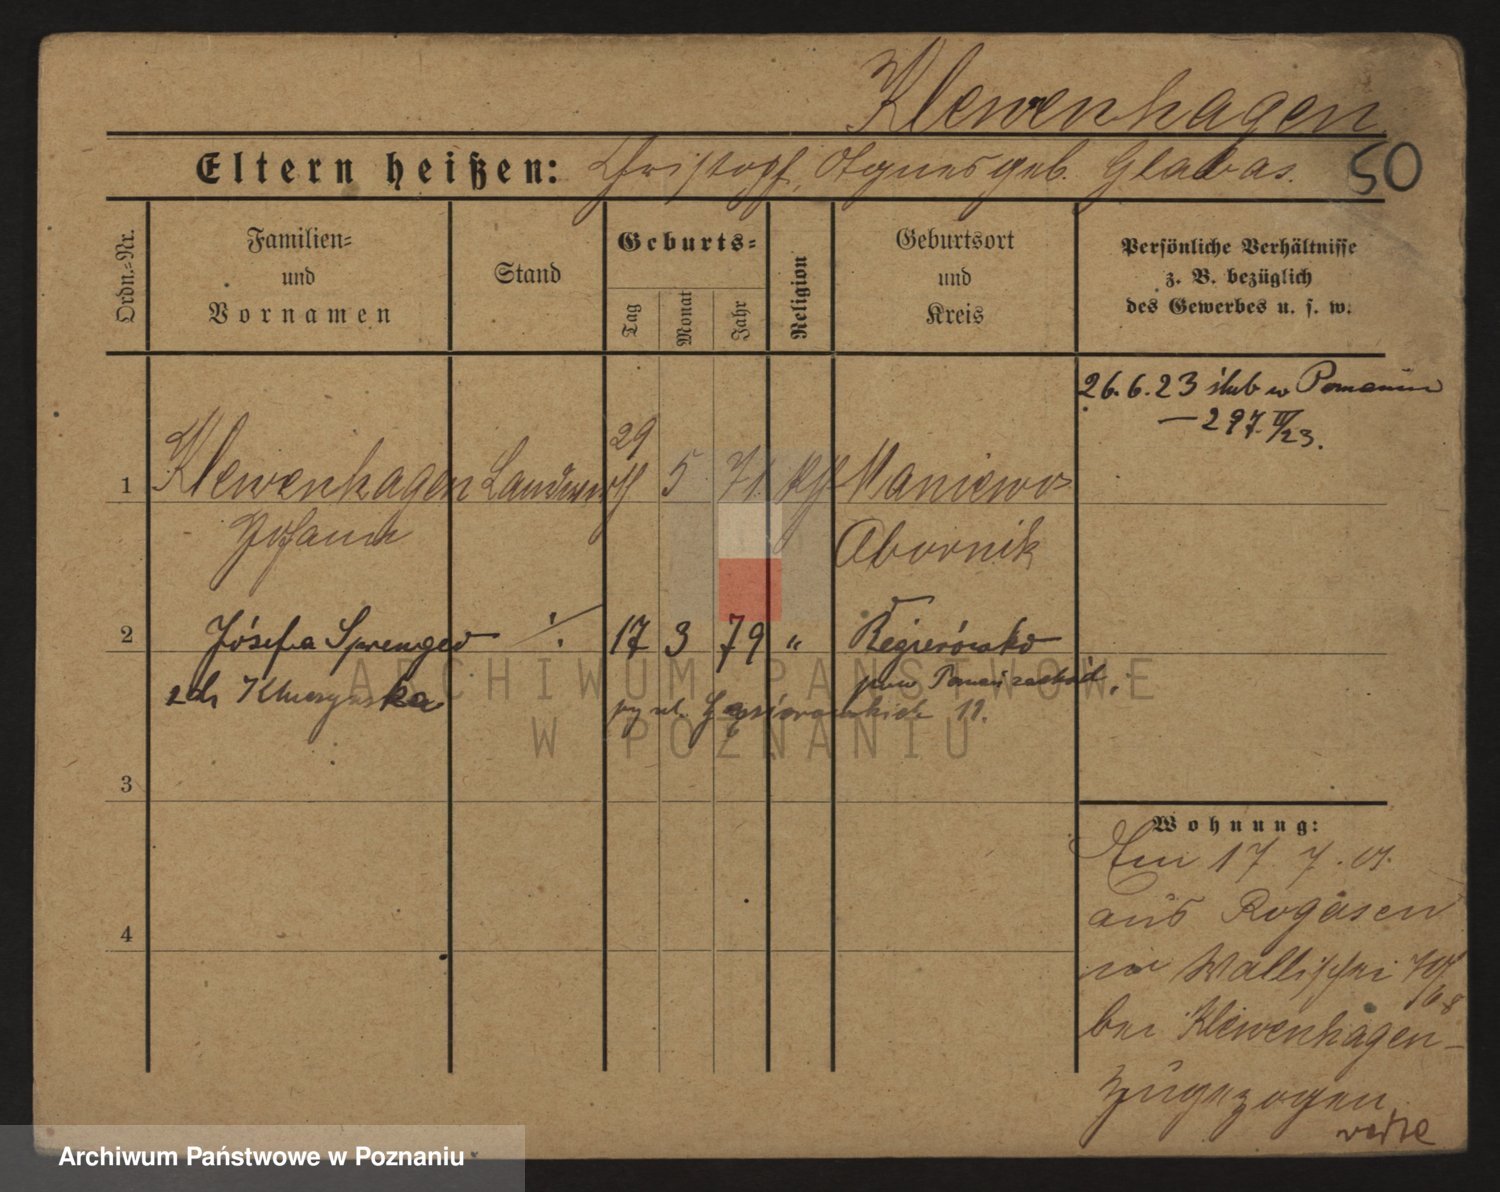 Klewenhagen
Eltern heißen: Christoph, Agnes geb. Glabas. 50
Ordn.-Nr.
Familien- und Vornamen
Stand
Geburts-
Tag Monat Jahr
Religion
Geburtsort und Kreis
Persönliche Verhältnisse
z. B. bezüglich
des Gewerbes u. s. w.
26.6.23 ślub w Poznaniu
— 297. III/23.
1 Klewenhagen Landwirth 29 5 71 Maniewo
Johann Obornik
2 Józefa Sprenged 17 3 79 "
zch pow Poznań zachód.
11.
3
4
Wohnung:
Am 17 7. 01.
aus Rogasen
in Wallischei 70/
68
bei Klewenhagen
zugezogen
ARCHIWUM PAŃSTWOWE
W POZNANIU
Archiwum Państwowe w Poznaniu